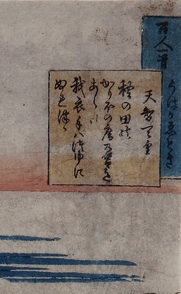 百人一首
うはかゑとき
天智天皇
穐の田の
かりほの庵の苫を
あらみ
我衣手ハ露に
ぬれつゝ